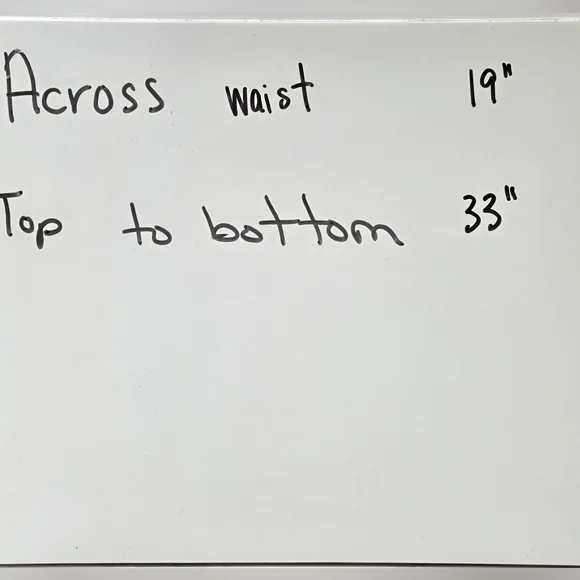 Across waist 19"
Top to bottom 33"